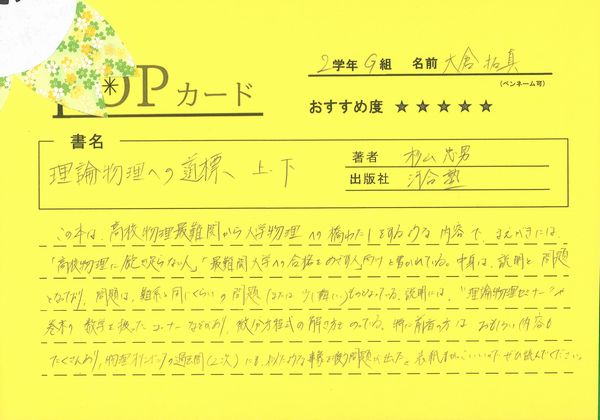 POPカード
2学年 G組 名前 大倉拓真
(ペンネーム可)
おすすめ度 ★★★★★
書名
理論物理への道標、上・下
著者 杉山忠男
出版社 河合塾
この本は、高校物理最難関から大学物理への橋わたしをする内容で、まえがきには、
「高校物理に飽き足らない人」「最難関大学への合格をめざす人」向けと書かれている。中身は、説明と問題
となっており、問題は、難系と同じくらいの問題(または少し難しい)ものとなっている。説明には、"理論物理セミナー"や
巻末の数学を扱ったコーナーなどがあり、微分方程式の解き方ものっている。特に前者の方はおもしろい内容も
たくさんあり、物理オリンピックの過去問(2次)にも、似たような事を扱う問題が出た。表紙も ぜひ読んでください。